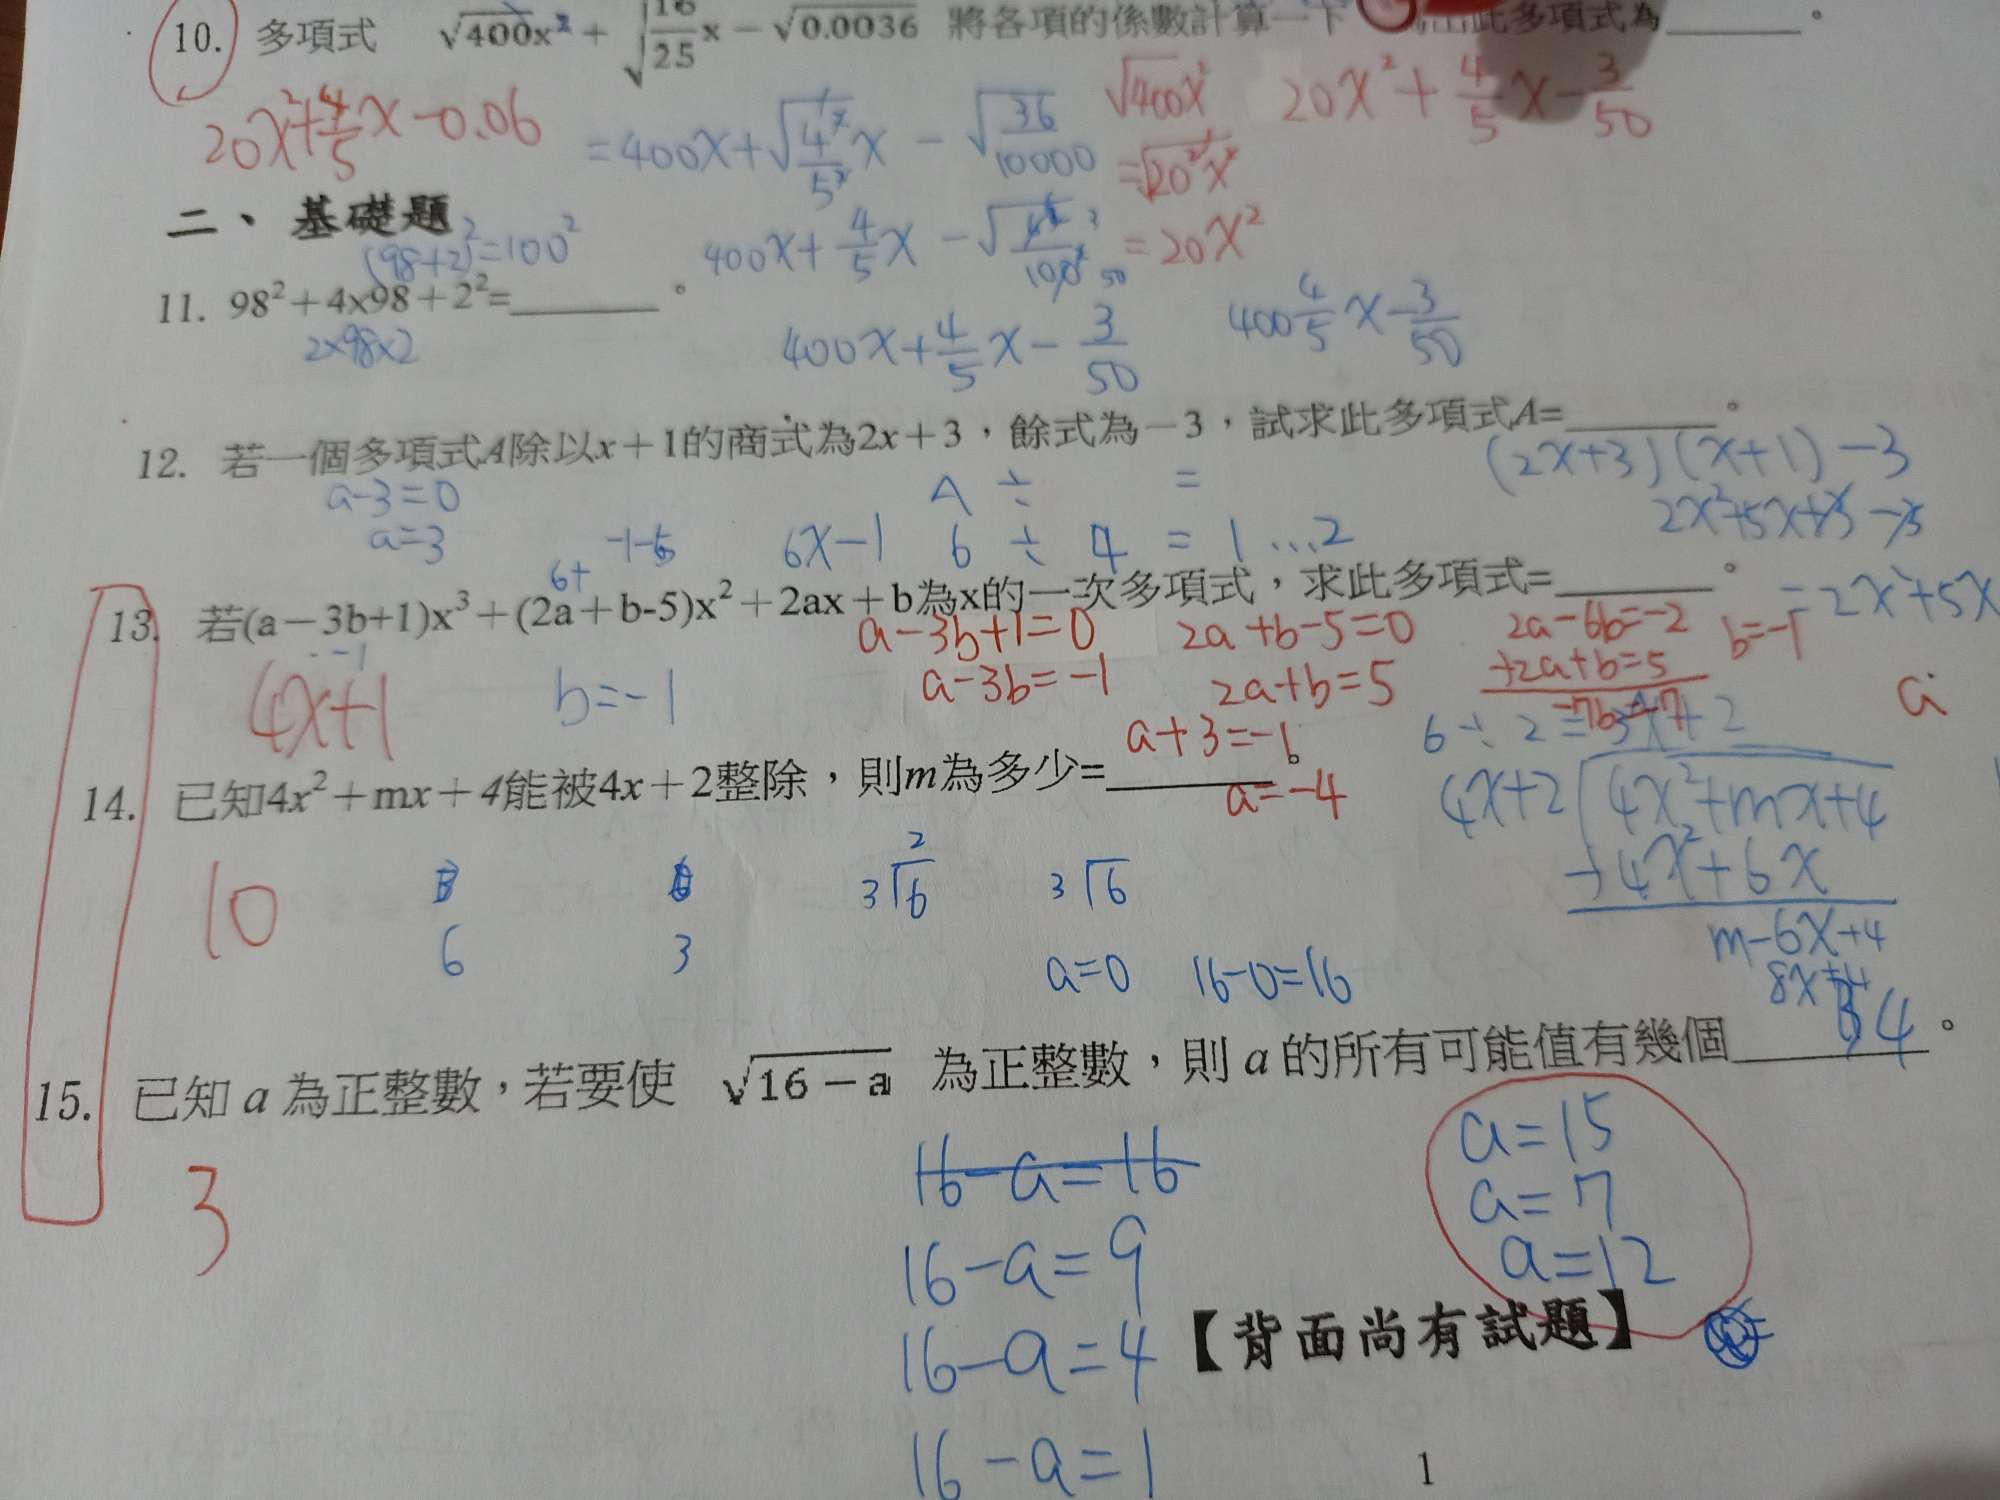 10. 多項式 √400x² + √16/25 x − √0.0036 將各項的係數計算一下 此多項式為______。
20x²+4/5x−0.06
=400x+√4²/5² x − √36/10000
√400x²
=√20²x²
=20x²
20x²+4/5x−3/50
二、基礎題
(98+2)²=100²
400x+4/5x−
11. 98²+4x98+2²=______。
2x98x2
400x+4/5x−3/50
400 4/5x−3/50
12. 若一個多項式A除以x+1的商式為2x+3，餘式為−3，試求此多項式A=______。
(2x+3)(x+1)−3
a-3=0
a=3
A ÷ =
2x²+5x+3−3
=2x²+5x
6x−1 6 ÷ 4 = 1…2
6+
13. 若(a−3b+1)x³+(2a+b-5)x²+2ax+b為x的一次多項式，求此多項式=______。
4x+1
b=−1
a−3b+1=0
a−3b=−1
2a+b−5=0
2a+b=5
2a−6b=−2
+2a+b=5
b=−1
a+3=−1
a=−4
14. 已知4x²+mx+4能被4x+2整除，則m為多少=______。
10
6÷2=3
4x+2
4x²+mx+4
4x²+6x
m−6x+4
8x+4
6
3
2
3√6
3√6
a=0 16−0=16
15. 已知 a 為正整數，若要使 √16−a 為正整數，則 a 的所有可能值有幾個______。
3
16−a=16
16−a=9
16−a=4
16−a=1
a=15
a=7
a=12
【背面尚有試題】
1